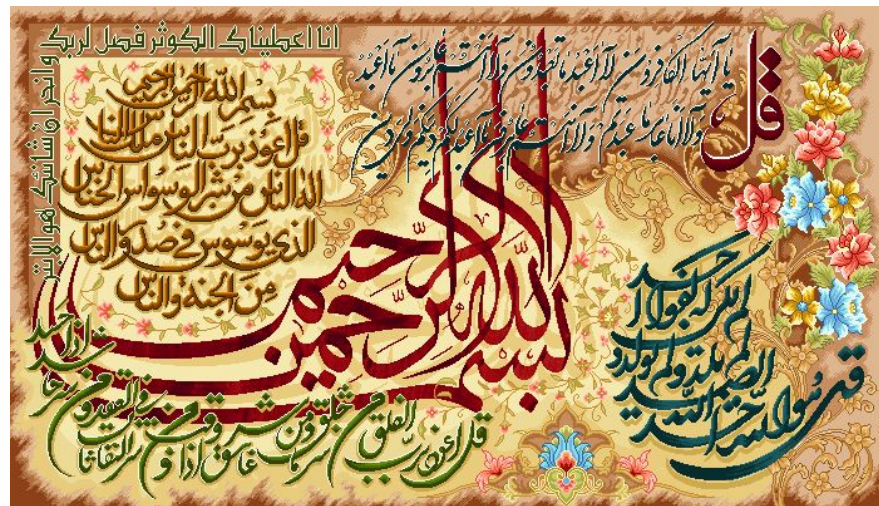 انا اعطيناك الكوثر فصل لربك
وانحر ان شانئك هو الابتر
قل
يا أيها الكافرون لا أعبد ما تعبدون ولا أنتم عابدون ما أعبد
ولا أنا عابد ما عبدتم ولا أنتم عابدون ما أعبد لكم دينكم ولي دين
بسم الله الرحمن الرحيم
قل اعوذ برب الناس ملك الناس
اله الناس من شر الوسواس الخناس
الذي يوسوس في صدور الناس
من الجنة والناس
بسم الله الرحمن الرحيم
قل هو الله احد
الله الصمد لم يلد ولم يولد
ولم يكن له كفوا احد
قل اعوذ برب الفلق من شر ما خلق ومن شر غاسق اذا وقب ومن شر النفاثات في العقد ومن شر حاسد اذا حسد